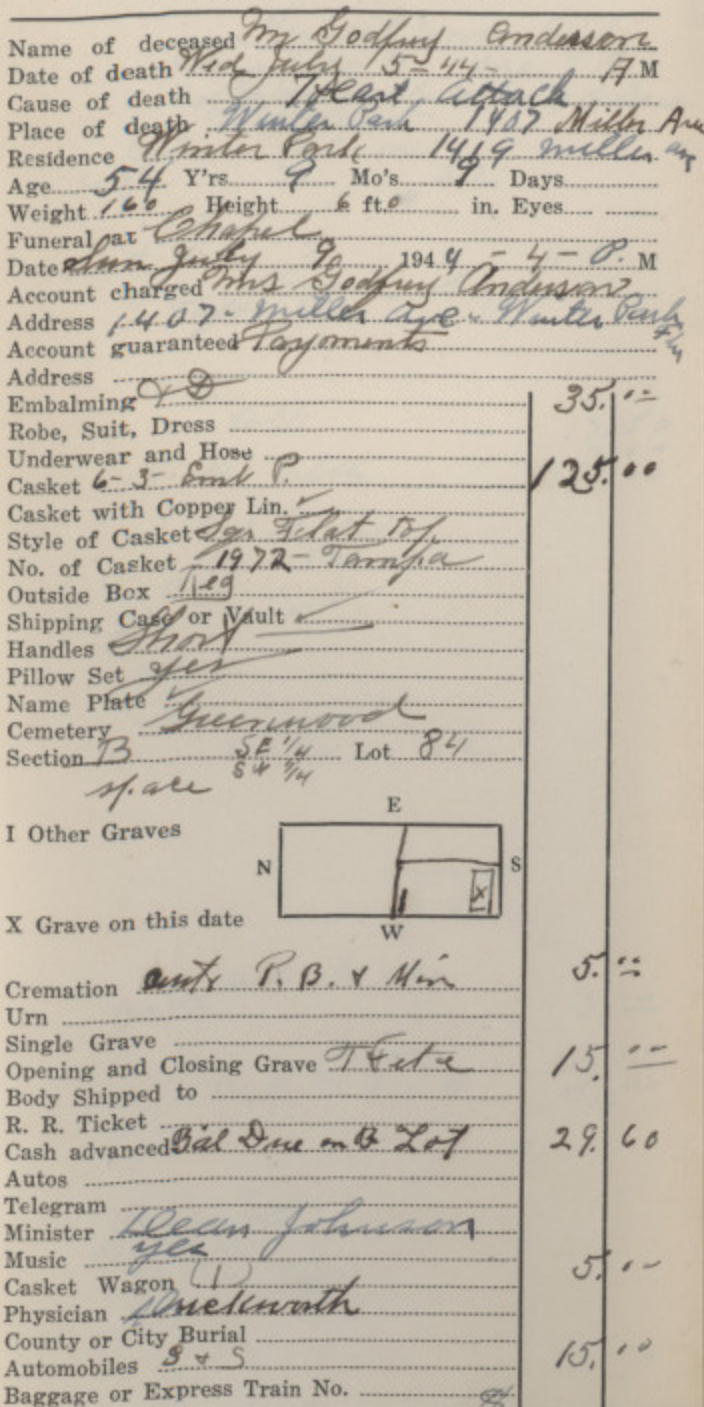 Name of deceased Mr Godfrey Anderson
Date of death Wed July 5-44- A M
Cause of death Heart Attack
Place of death Winter Park 1407 Miller Ave
Residence Winter Park 1419 Miller Ave
Age 54 Y'rs 9 Mo's 9 Days
Weight 160 Height 6 ft. 0 in. Eyes
Funeral at Chapel
Date Sun July 9 1944 - 4 - P. M
Account charged Mrs Godfrey Anderson
Address 1407 - Miller Ave - Winter Park Fla
Account guaranteed Payments
Address
Embalming 35.00
Robe, Suit, Dress
Underwear and Hose
Casket 6-3- Emb P. 125.00
Casket with Copper Lin.
Style of Casket Sqr Flat Top
No. of Casket 1972 - Tampa
Outside Box Reg
Shipping Case or Vault
Handles Short
Pillow Set yes
Name Plate
Cemetery Greenwood
Section B SE 1/4 Lot 84
space
I Other Graves
E
N
S
X
X Grave on this date
W
Cremation P. B. & Min 5.00
Urn
Single Grave
Opening and Closing Grave 15.00
Body Shipped to
R. R. Ticket
Cash advanced Bal Due on B Lot 29.60
Autos
Telegram
Minister Dean Johnson
Music yes 5.00
Casket Wagon
Physician Duckworth
County or City Burial
Automobiles 15.00
Baggage or Express Train No.